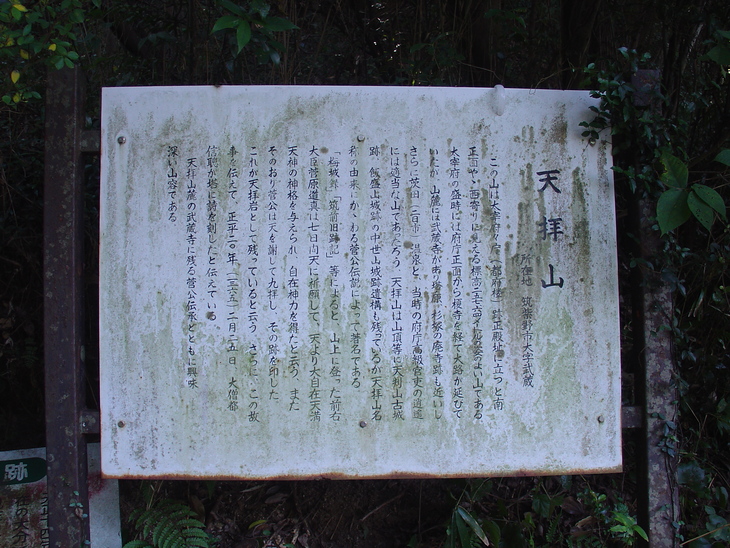 天拝山
所在地 筑紫野市大字武蔵
この山は大宰府政庁（都府楼）跡正殿址に立つと南
正面やゝ西寄りに見える標高二五七㍍の姿のよい山である
大宰府の盛時には府庁正面から榎寺を経て大路が延びて
いたが、山麓には武蔵寺があり塔原、杉塚の廃寺跡も近いし
さらに茨田（二日市）温泉と、当時の府庁高級官吏の逍遥
には適当な山であったろう 天拝山は山頂等に天判山古城
跡、飯盛山城跡の中世山城跡遺構も残っているが天拝山名
称の由来にかゝわる菅公伝説によって著名である
「梅城詳」「筑前旧跡記」等によると、山上に登った前右
大臣菅原道真は七日間天に祈願して、天より大自在天満
天神の神格を与えられ、自在神力を得たと云う また
そのおり菅公は天を謝して九拝し、その跡を印した
これが天拝岩として残っていると云う さらに、この故
事を伝えて、正平二〇年（一三六五）二月二五日 大僧都
信聡が塔に詩を刻したと伝えている。
天拝山麓の武蔵寺に残る菅公伝承とともに興味
深い山容である
跡